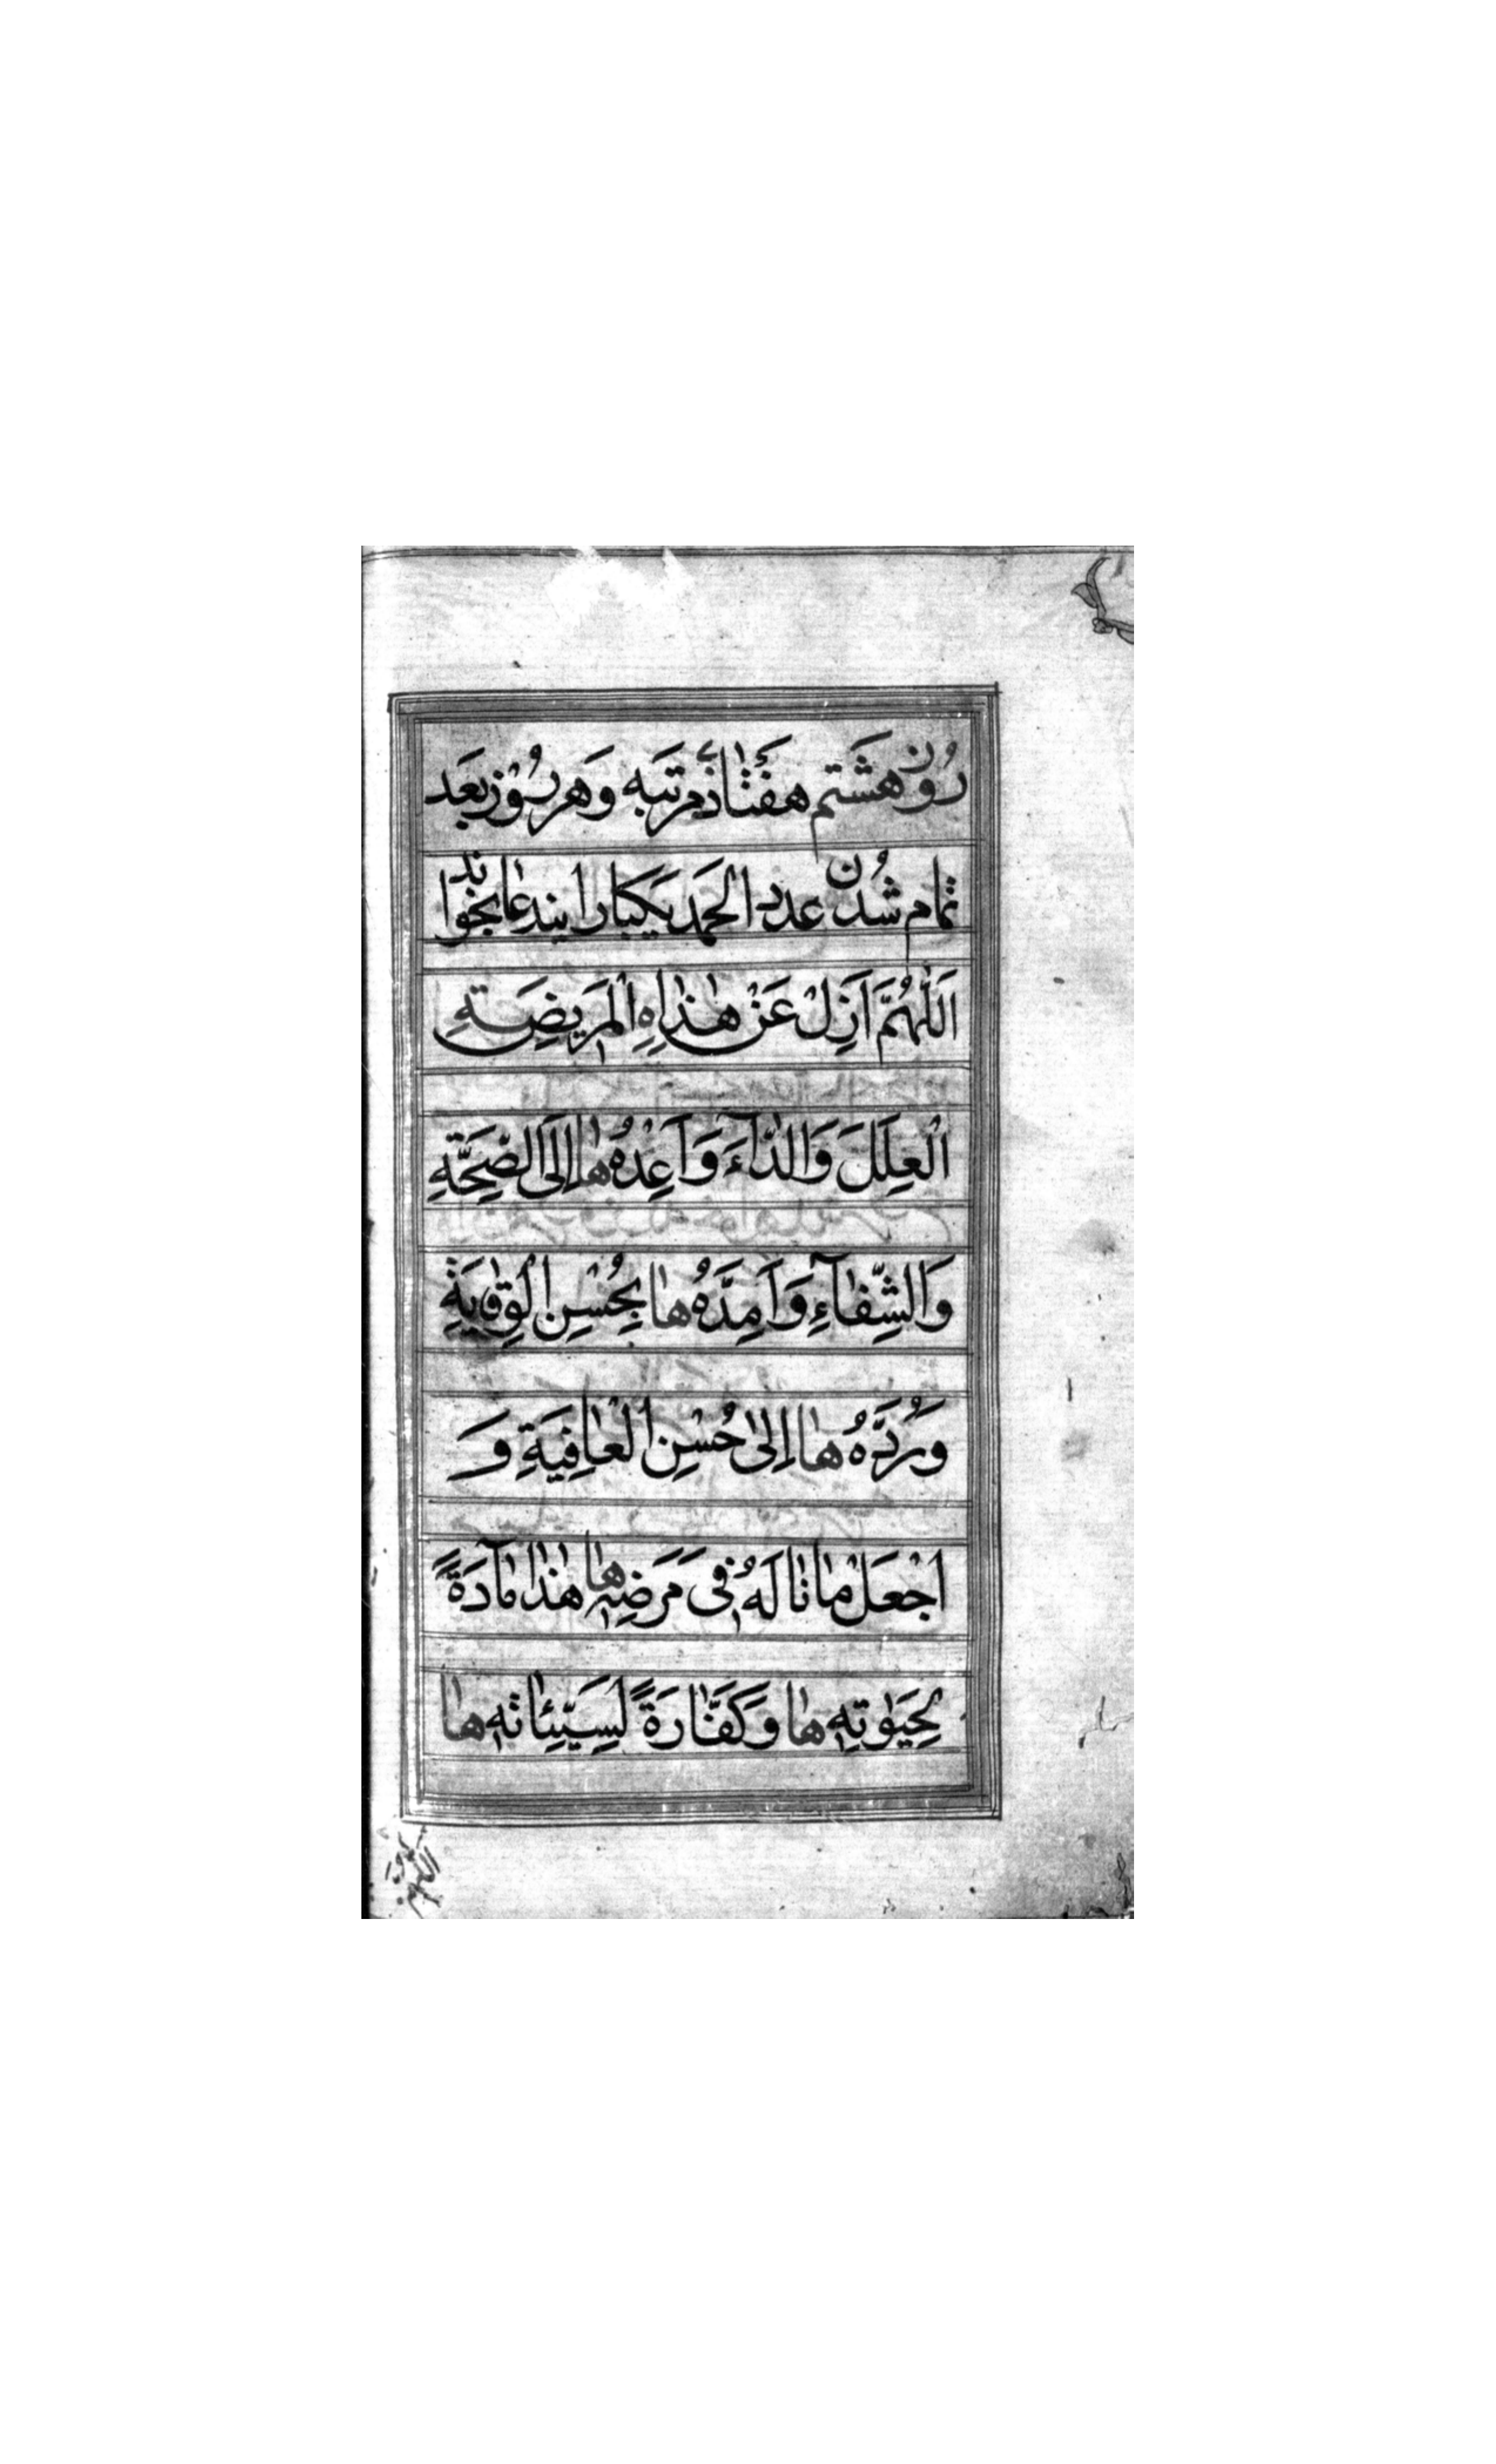 رُوز هَشَتم هَفَتٰادُم مرتَبَه وَهَر رُوْز بَعَد
تمام شُدن عدد الحمد یَکبار ایندعا بخواند
اَللّٰهُمَّ اَزِلْ عَنْ هٰذاهِ المَریضَتهِ
الْعِلَلَ وَالدّٰآءَ وَاَعِدْهُ هٰا اِلَی الصِّحَّةِ
وَالشِّفٰآءِ وَاَمِدَّهُ هٰا بِحُسْنِ الْوِقٰایَةِ
وَرُدَّهُ هٰا اِلیٰ حُسْنِ الْعٰافِیَةِ وَ
اجْعَلْ مٰا نٰالَهُ فی مَرَضِهِ هٰا هٰذٰا مٰآدَةً
لِحَیٰوتِهِ هٰا وَکَفّٰارَةً لِسَیِّئٰاتِهِ هٰا